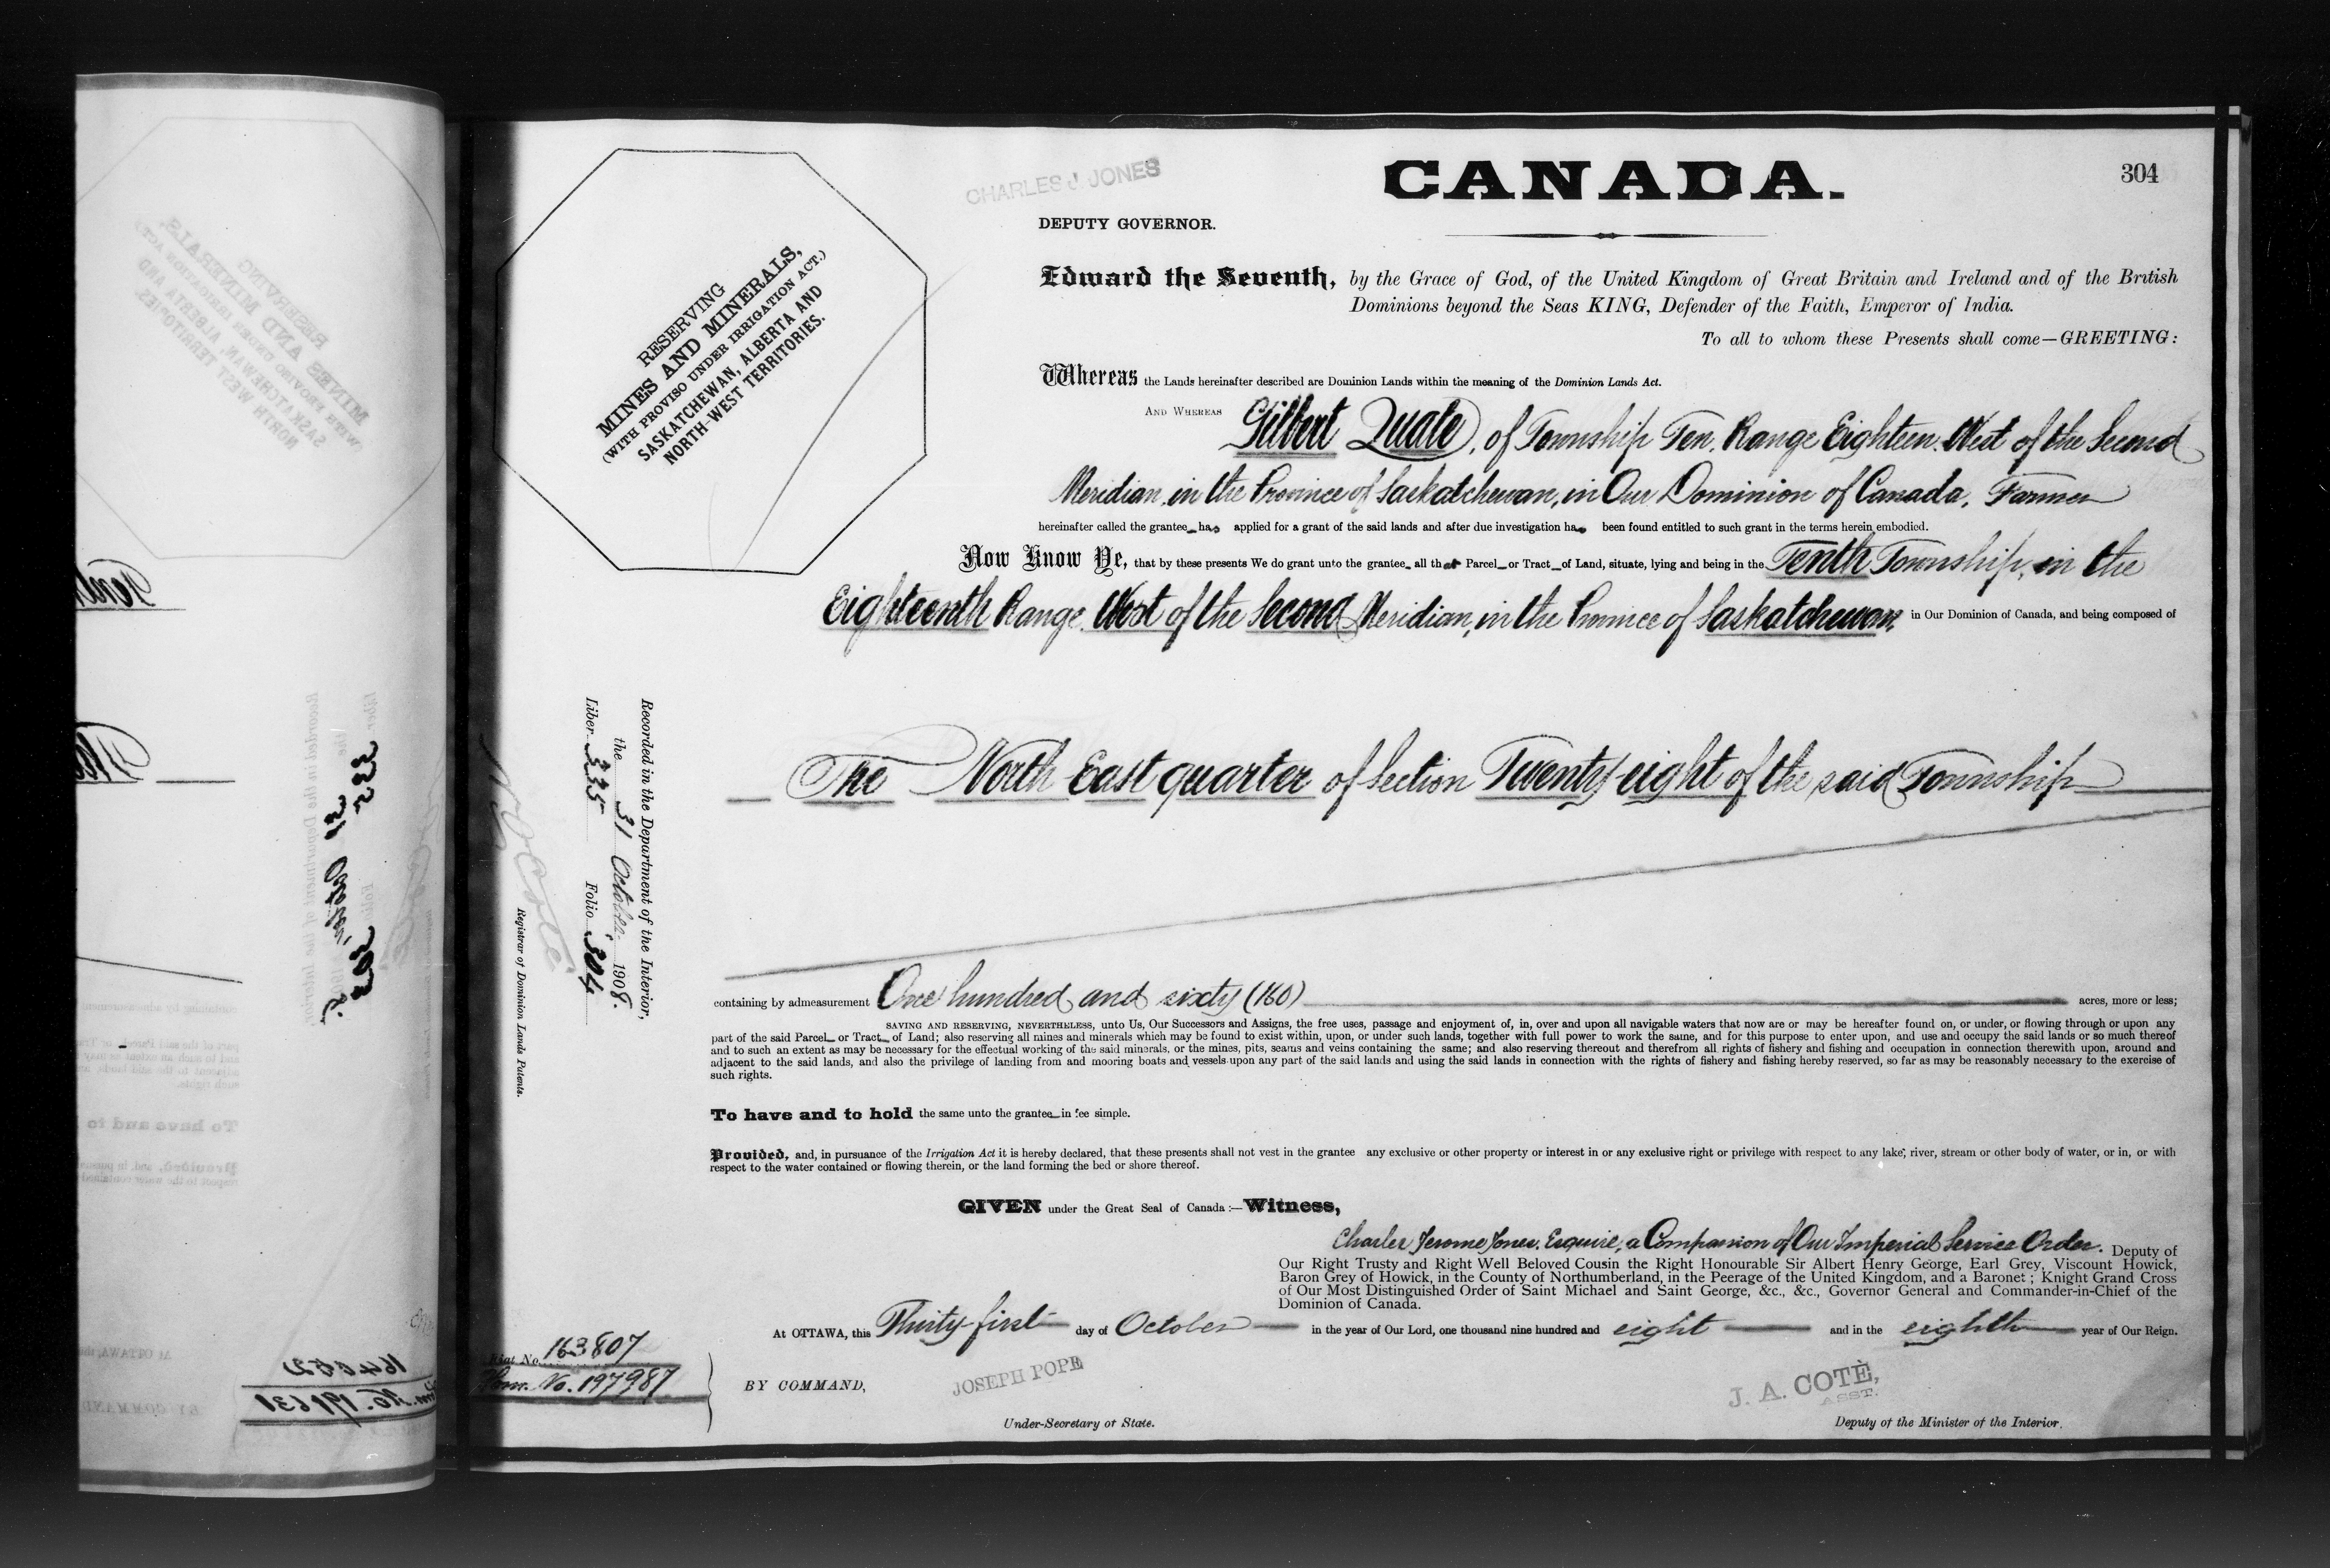 304
CANADA.
CHARLES J. JONES
DEPUTY GOVERNOR.
Edward the Seventh, by the Grace of God, of the United Kingdom of Great Britain and Ireland and of the British
Dominions beyond the Seas KING, Defender of the Faith, Emperor of India.
To all to whom these Presents shall come—GREETING:
RESERVING
MINES AND MINERALS,
(WITH PROVISO UNDER IRRIGATION ACT.)
SASKATCHEWAN, ALBERTA AND
NORTH-WEST TERRITORIES.
Whereas the Lands hereinafter described are Dominion Lands within the meaning of the Dominion Lands Act.
AND WHEREAS Gilbert Quale, of Township Ten, Range Eighteen West of the Second
Meridian, in the Province of Saskatchewan, in Our Dominion of Canada, Farmer
hereinafter called the grantee has applied for a grant of the said lands and after due investigation has been found entitled to such grant in the terms herein embodied.
Now Know Ye, that by these presents We do grant unto the grantee all that Parcel or Tract of Land, situate, lying and being in the Tenth Township, in the
Eighteenth Range West of the Second Meridian, in the Province of Saskatchewan, in Our Dominion of Canada, and being composed of
The North East quarter of Section Twenty eight of the said Township
Recorded in the Department of the Interior,
the 31 October 1908.
Liber 335 Folio 304
Registrar of Dominion Lands Patents.
containing by admeasurement One hundred and sixty (160) acres, more or less;
SAVING AND RESERVING, NEVERTHELESS, unto Us, Our Successors and Assigns, the free uses, passage and enjoyment of, in, over and upon all navigable waters that now are or may be hereafter found on, or under, or flowing through or upon any
part of the said Parcel or Tract of Land; also reserving all mines and minerals which may be found to exist within, upon, or under such lands, together with full power to work the same, and for this purpose to enter upon, and use and occupy the said lands or so much thereof
and to such an extent as may be necessary for the effectual working of the said minerals, or the mines, pits, seams and veins containing the same; and also reserving thereout and therefrom all rights of fishery and fishing and occupation in connection therewith upon, around and
adjacent to the said lands, and also the privilege of landing from and mooring boats and vessels upon any part of the said lands and using the said lands in connection with the rights of fishery and fishing hereby reserved, so far as may be reasonably necessary to the exercise of
such rights.
To have and to hold the same unto the grantee in fee simple.
Provided, and, in pursuance of the Irrigation Act it is hereby declared, that these presents shall not vest in the grantee any exclusive or other property or interest in or any exclusive right or privilege with respect to any lake, river, stream or other body of water, or in, or with
respect to the water contained or flowing therein, or the land forming the bed or shore thereof.
GIVEN under the Great Seal of Canada:—Witness,
Charles Jerome Jones, Esquire, a Companion of Our Imperial Service Order. Deputy of
Our Right Trusty and Right Well Beloved Cousin the Right Honourable Sir Albert Henry George, Earl Grey, Viscount Howick,
Baron Grey of Howick, in the County of Northumberland, in the Peerage of the United Kingdom, and a Baronet; Knight Grand Cross
of Our Most Distinguished Order of Saint Michael and Saint George, &c., &c., Governor General and Commander-in-Chief of the
Dominion of Canada.
At OTTAWA, this Thirty first day of October in the year of Our Lord, one thousand nine hundred and eight and in the eighth year of Our Reign.
Fiat No. 163807
Hom. No. 197987
BY COMMAND,
JOSEPH POPE
Under-Secretary of State.
J. A. COTÈ,
ASST.
Deputy of the Minister of the Interior.